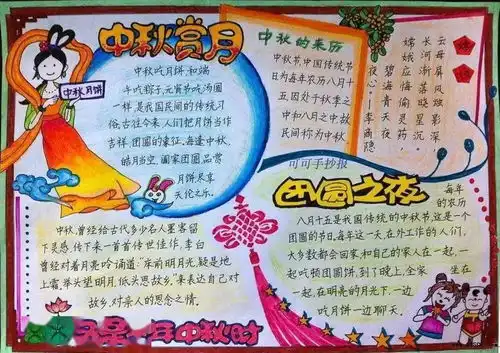 中秋赏月
中秋月饼
中秋吃月饼和端
午吃粽子、元宵节吃汤圆
一样是我国民间的传统习
俗。古往今来,人们把月饼当作
吉祥、团圆的象征。每逢中秋,
皓月当空,阖家团圆品赏
月饼尽享
天伦之乐。
中秋的来历
中秋节中国传统节
日为每年农历八月十
五因处于秋季之
中和八月之中故
民间称为中秋
嫦娥
云母屏风烛影深
长河渐落晓星沉
嫦娥应悔偷灵药
碧海青天夜夜心
——李商隐
可可手抄报
团圆之夜
每年
的农历
八月十五是我国传统的中秋节,这是一个
团圆的节日。每年这一天,在外工作的人们,
大多数都会回家,和自己的家人在一起,一
起吃顿团圆饼,到了晚上,全家 坐在
一起,在明亮的月光下,一边
吃月饼一边聊天。
中秋,曾经给古代多少名人墨客留
下灵感,传下来一首首传世佳作,李白
曾经对着月亮吟诵道:“床前明月光,疑是地
上霜,举头望明月,低头思故乡。”来表达自己对
故乡,对亲人的思念之情。
又是一年中秋时